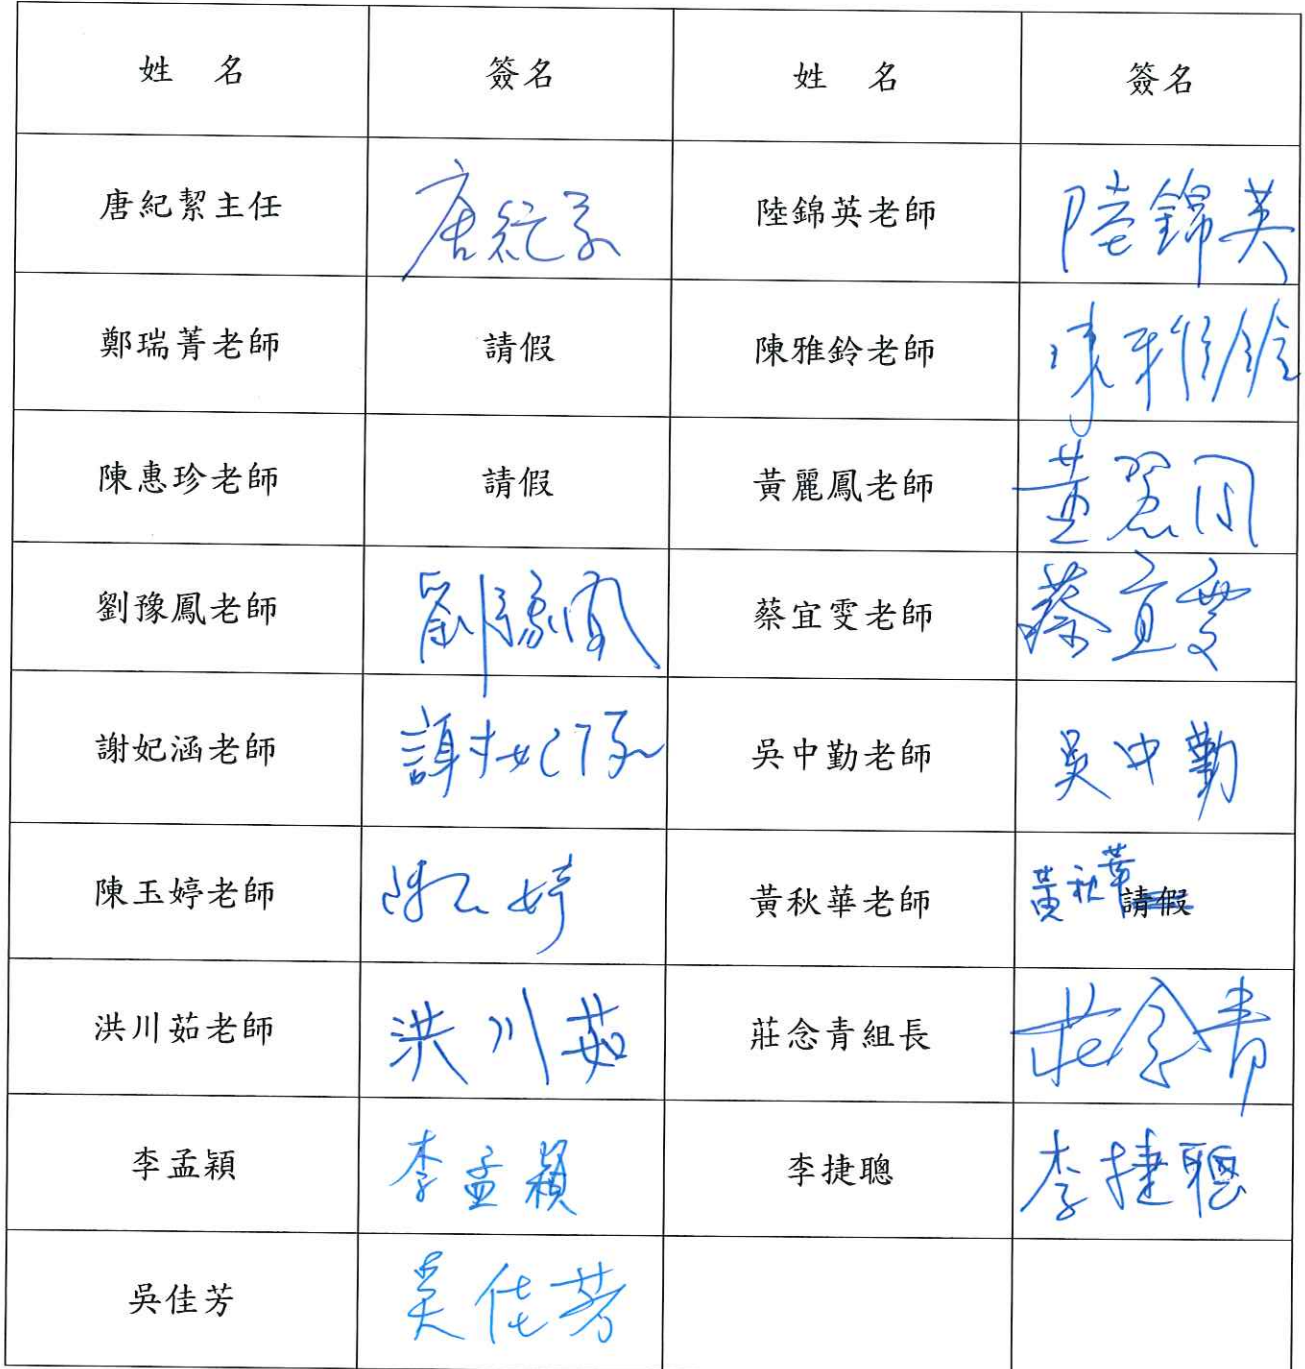 姓 名 簽名 姓 名 簽名
唐紀絜主任 唐紀絜 陸錦英老師 陸錦英
鄭瑞菁老師 請假 陳雅鈴老師 陳雅鈴
陳惠珍老師 請假 黃麗鳳老師 黃麗鳳
劉豫鳳老師 劉豫鳳 蔡宜雯老師 蔡宜雯
謝妃涵老師 謝妃涵 吳中勤老師 吳中勤
陳玉婷老師 陳玉婷 黃秋華老師 黃秋華 請假
洪川茹老師 洪川茹 莊念青組長 莊念青
李孟穎 李孟穎 李捷聰 李捷聰
吳佳芳 吳佳芳